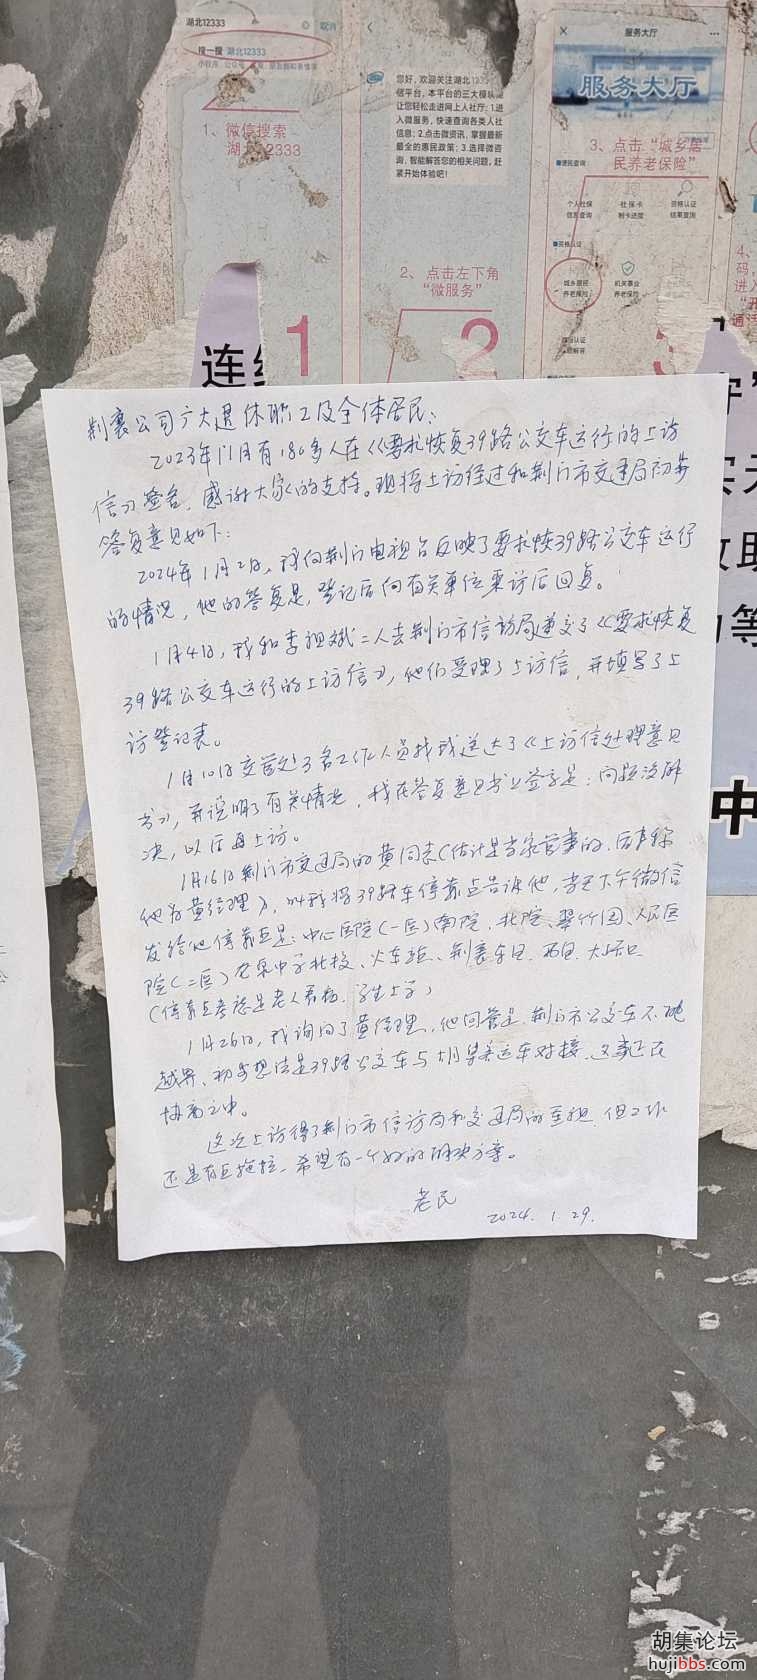 湖北12333
取消
搜一搜 湖北12333
1、微信搜索
湖北12333
您好，欢迎关注湖北12333微
信平台，本平台的三大模块
让您轻松走进网上人社厅：1.进
入微服务，快速查询各类人社
信息；2.点击微资讯，掌握最新
最全的惠民政策；3.选择微咨
询，智能解答您的相关问题，赶
紧开始体验吧！
2、点击左下角
“微服务”
服务大厅
服务大厅
3、点击“城乡居
民养老保险”
个人社保
信息查询
社保卡
制卡进度
资格认证
结果查询
资格认证
城乡居民
养老保险
机关事业
养老保险
1
2
3
连
中
荆襄公司广大退休职工及全体居民：
2023年11月有180多人在《要求恢复39路公交车运行的上访
信》签名，感谢大家的支持。现将上访经过和荆门市交通局初步
答复意见如下：
2024年1月2日，我向荆门电视台反映了要求恢39路公交车运行
的情况，他的答复是，登记后向有关单位采访后回复。
1月4日，我和李祖斌二人去荆门市信访局递交了《要求恢复
39路公交车运行的上访信》，他们受理了上访信，并填写了上
访登记表。
1月10日交管处3名工作人员找我送达了《上访信处理意见
书》，并说明了有关情况，我在答复意见书上签字是：问题没解
决，以后再上访。
1月16日荆门市交通局的黄同志（估计是当家管事的，后来称
他为黄经理），叫我将39路车停靠点告诉他，当天下午微信
发给他停靠点是：中心医院（一医）南院、北院、翠竹园、人民医
院（二医）龙泉中学北校、火车站、荆襄东区、西区、大峪口
（停靠点考虑是老人看病，学生上学）
1月26日，我询问了黄经理，他回答是，荆门市公交车不能
越界、初步想法是39路公交车与胡集客运车对接，这事正在
协商之中。
这次上访得了荆门市信访局和交通局的重视，但工作
还是有点拖拉，希望有一个好的解决方案。
老民
2024.1.29.
胡集论坛
hujibbs.com